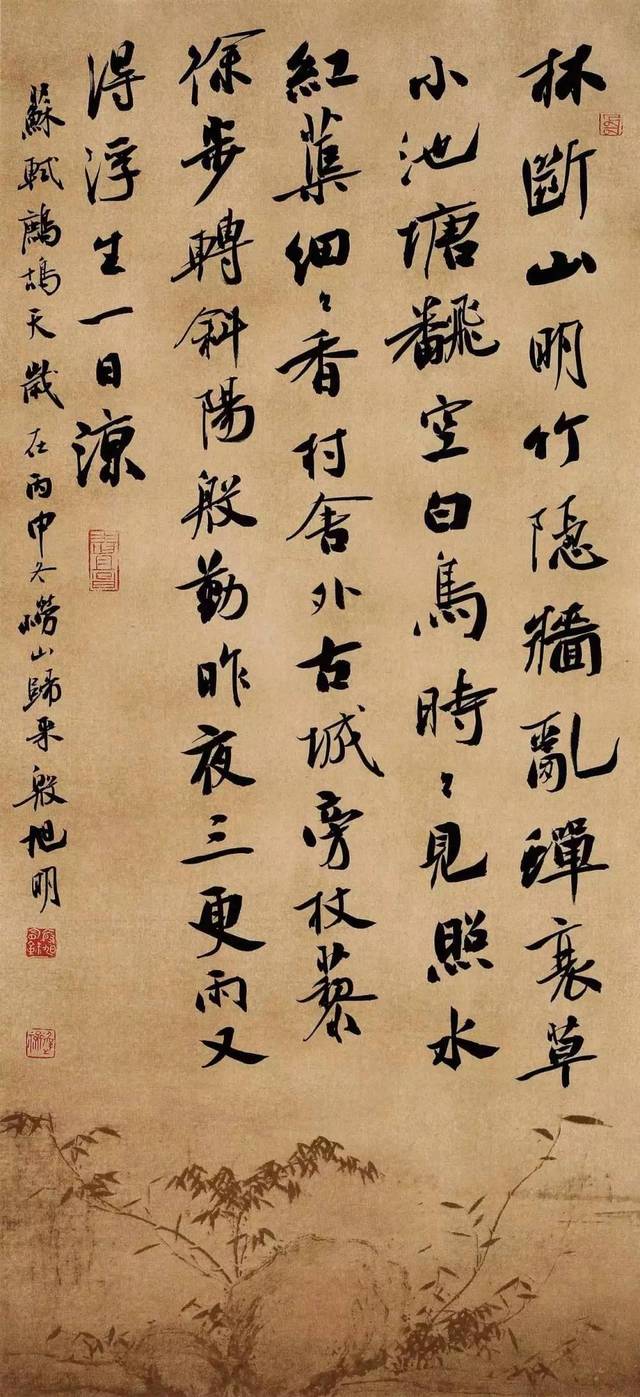 林斷山明竹隱牆亂蟬衰草
小池塘飜空白鳥時〻見照水
紅蕖細〻香村舍外古城旁杖藜
徐步轉斜陽殷勤昨夜三更雨又
得浮生一日涼
蘇軾鷓鴣天歲在丙申冬嶗山歸來殷旭明